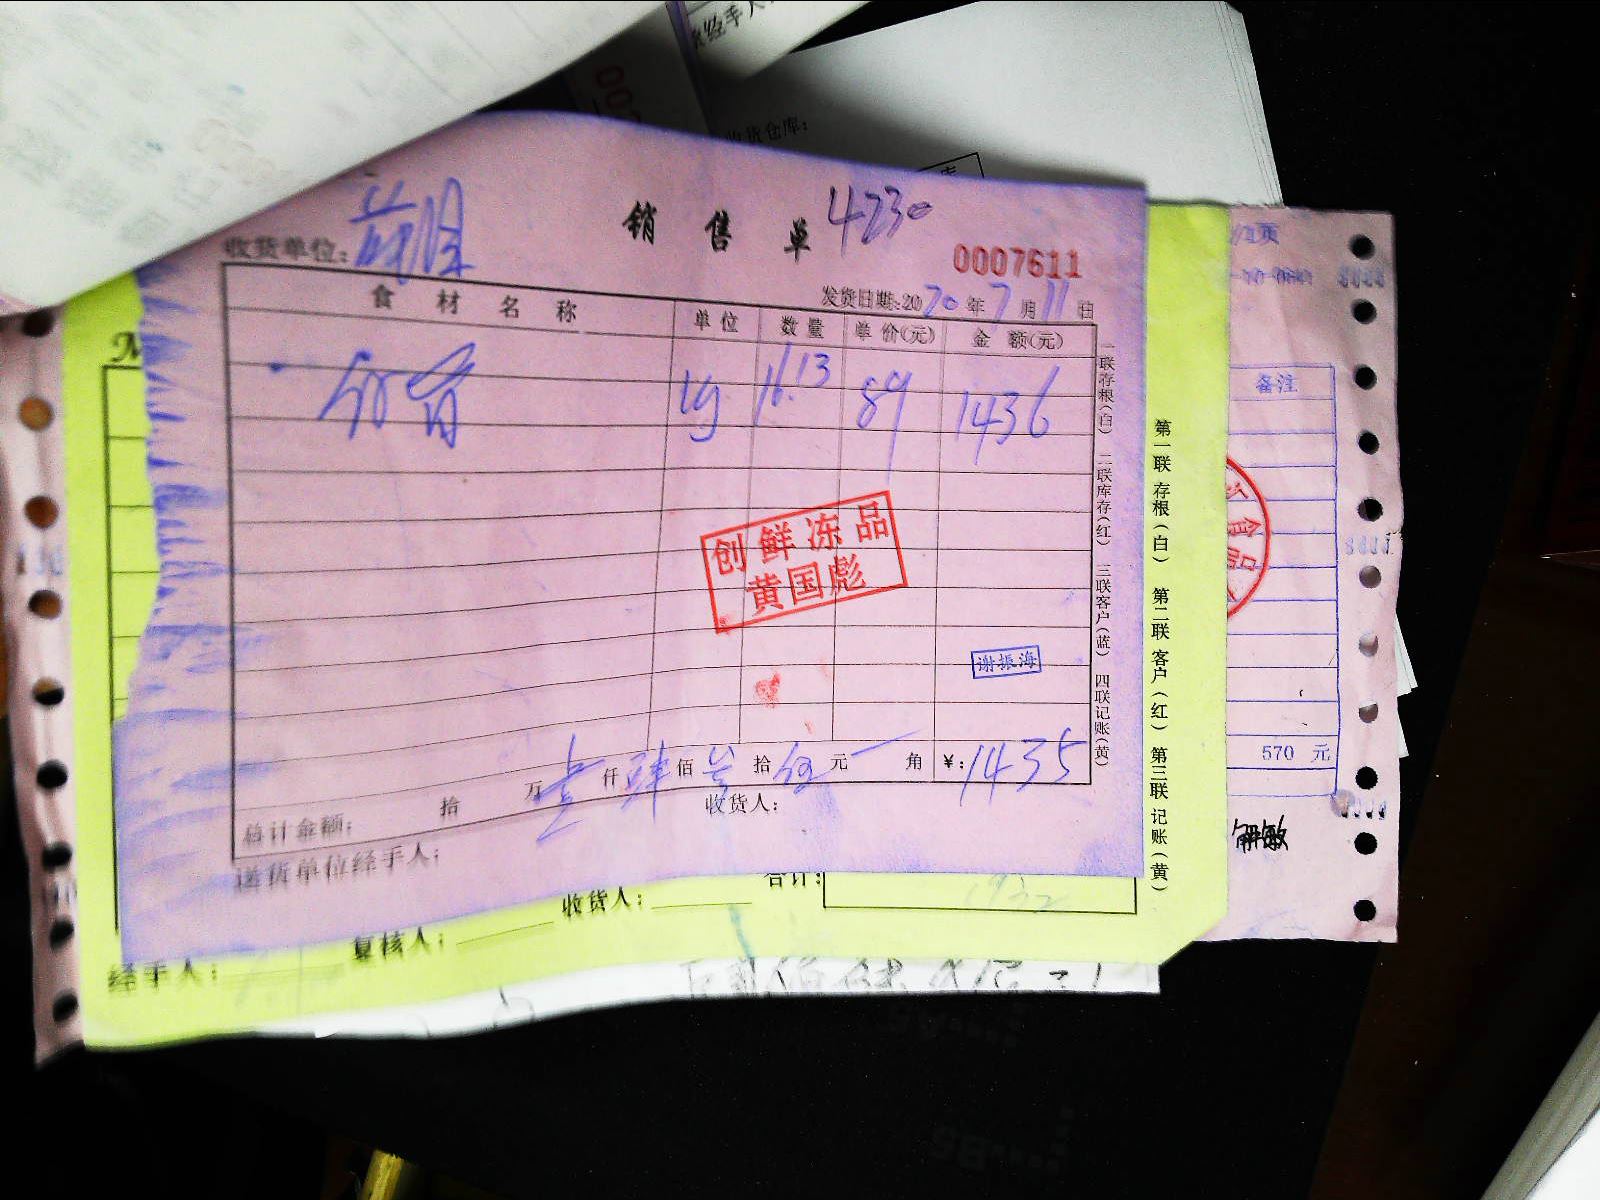 收货仓库：
销售单 4230
收货单位：
0007611
发货日期：2020年7月11日
食材名称 单位 数量 单价(元) 金额(元)
kg 16.13 89 1436
创鲜冻品
黄国彪
谢振海
总计金额： 拾 万 壹 仟 肆 佰 叁 拾 伍 元 角 ¥：1435
收货人：
送货单位经手人：
一联存根(白) 二联库存(红) 三联客户(蓝) 四联记账(黄)
合计：
收货人：
复核人：
经手人：
第一联 存根(白) 第二联 客户(红) 第三联 记账(黄)
备注
570 元
解敏